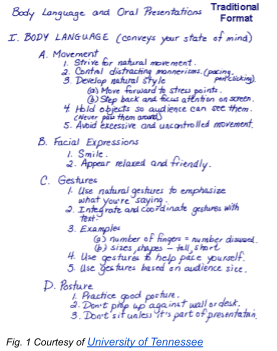 Body Language and Oral Presentations
Traditional Format
I. BODY LANGUAGE (conveys your state of mind)
A. Movement
1. Strive for natural movement.
2. Control distracting mannerisms. (pacing, pen clicking).
3. Develop natural style
(a) Move forward to stress points.
(b) Step back and focus attention on screen.
4. Hold objects so audience can see them.
(Never pass them around)
5. Avoid excessive and uncontrolled movement.
B. Facial Expressions
1. Smile.
2. Appear relaxed and friendly.
C. Gestures
1. Use natural gestures to emphasize
what you're saying.
2. Integrate and coordinate gestures with
text.
3. Examples
(a) number of fingers = number discussed.
(b) sizes, shapes - tall, short
4. Use gestures to help pace yourself.
5. Use gestures based on audience size.
D. Posture
1. Practice good posture.
2. Don't prop up against wall or desk.
3. Don't sit unless it's part of presentation.
Fig. 1 Courtesy of University of Tennessee